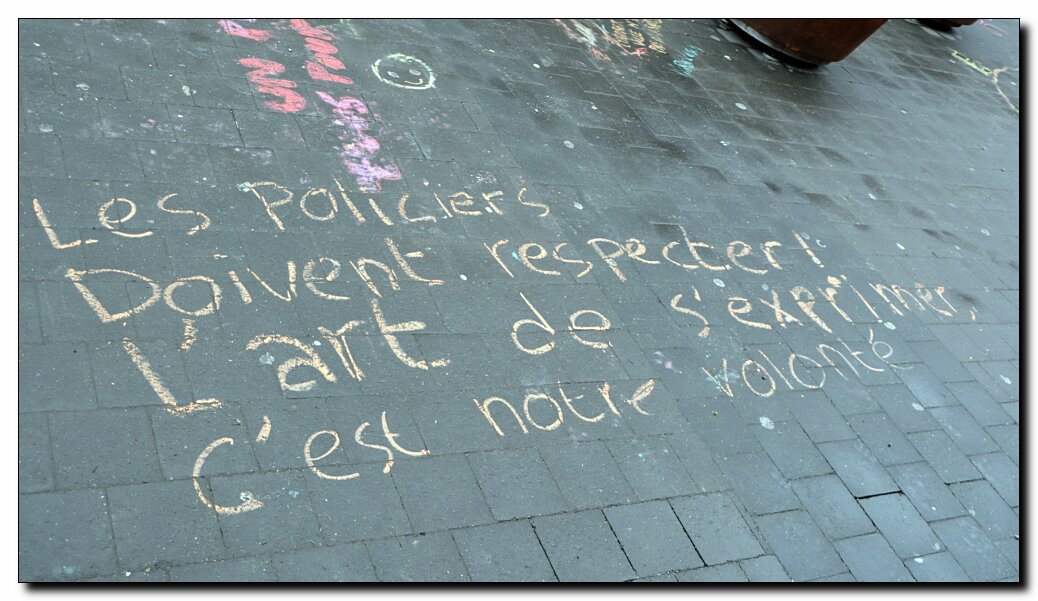 un
pour
tous
Les policiers
Doivent respecter!
L'art de s'exprimer,
c'est notre volonté